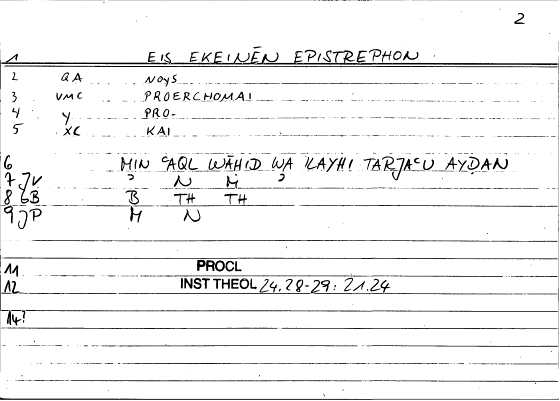 2
1 EIS EKEINĒN EPISTREPHON
2 QA NOYS
3 VMC PROERCHOMAI
4 y PRO-
5 XC KAI
6 MIN ʿAQL WĀHID WA ILAYHI TARJAʿU AYḌAN
7 JV ʾ N M ʾ
8 GB B TH TH
9 JP M N
11 PROCL
12 INST THEOL 24.28-29: 21.24
14?